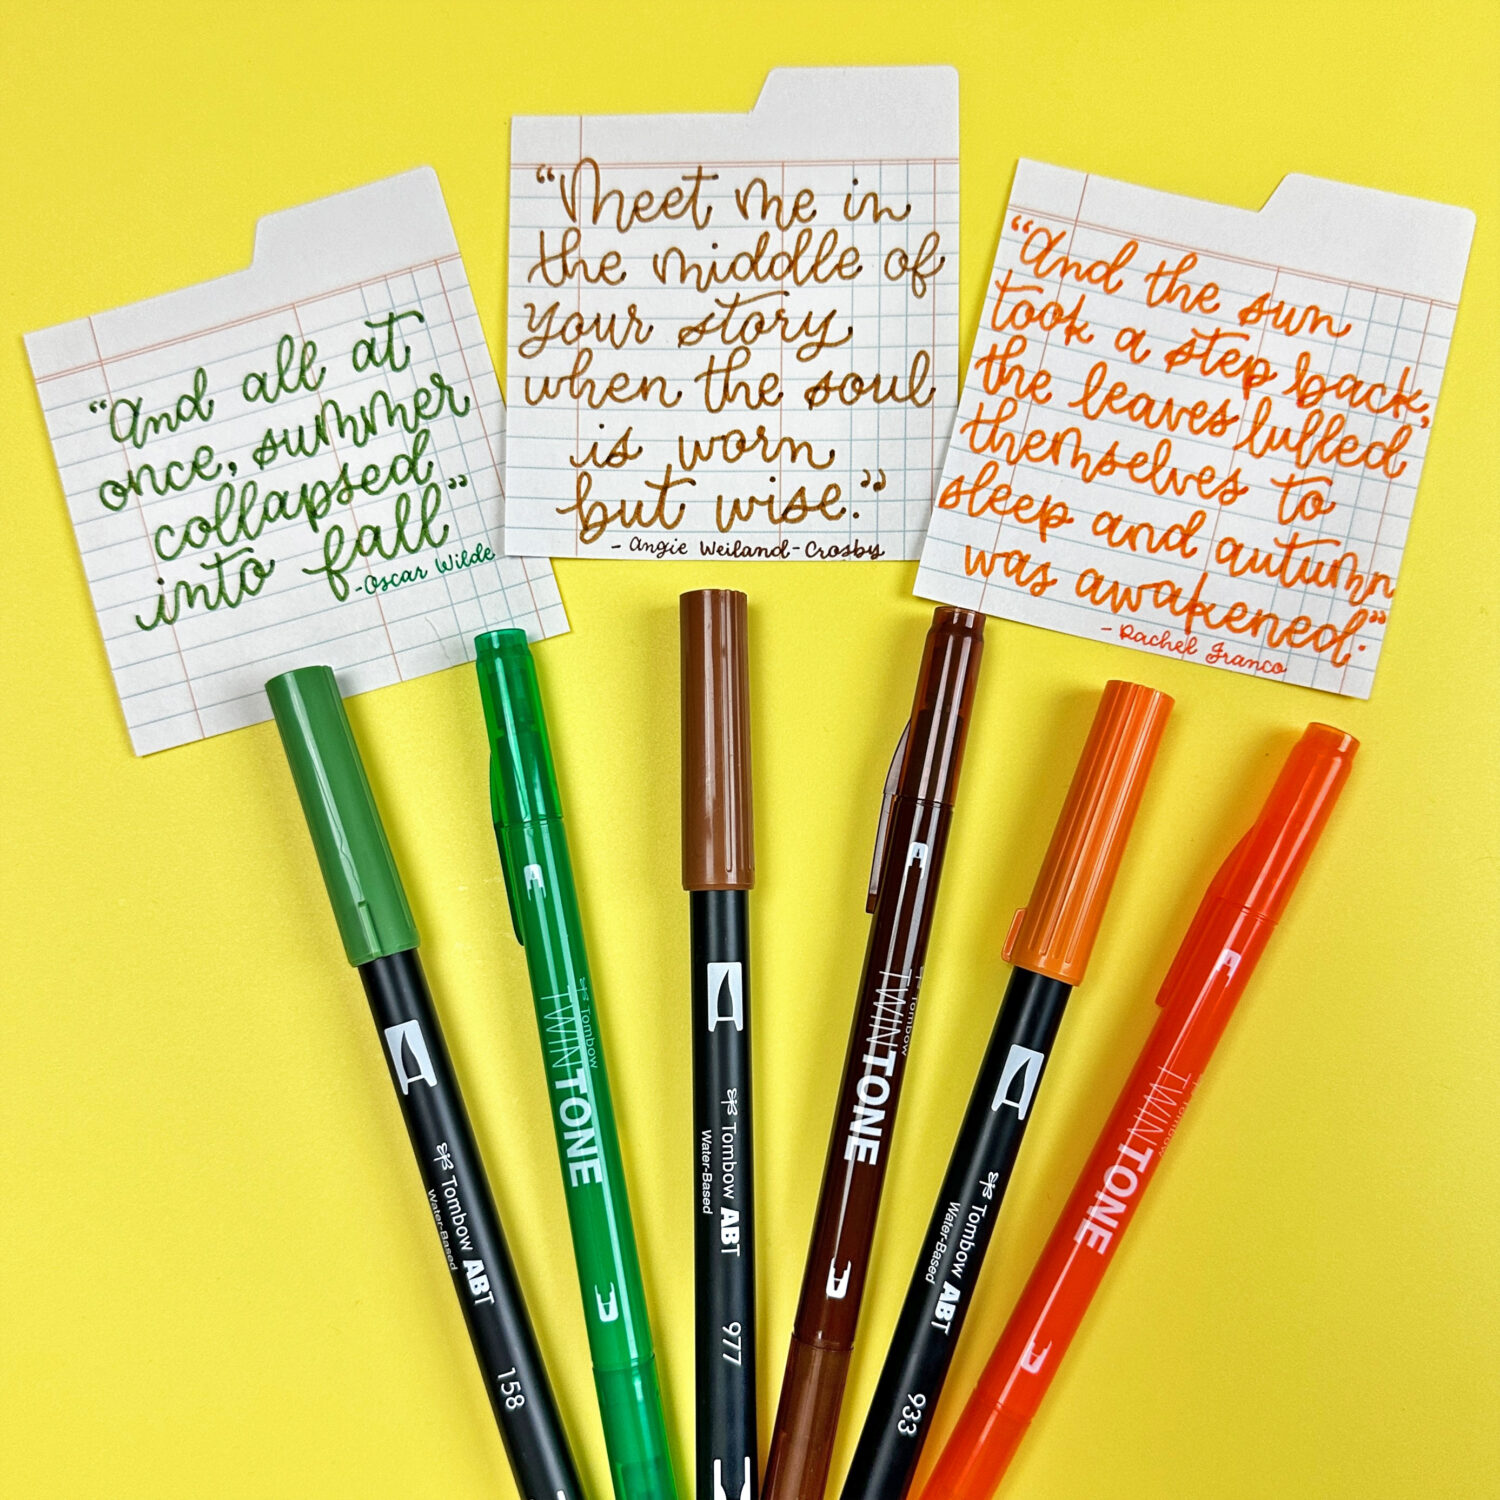 “And all at
once, summer
collapsed
into fall”
-Oscar Wilde
“Meet me in
the middle of
your story
when the soul
is worn
but wise.”
- Angie Weiland-Crosby
“And the sun
took a step back,
the leaves lulled
themselves to
sleep and autumn
was awakened.”
- Rachel Franco
Tombow ABT
Water-Based
158
Tombow
TWINTONE
Tombow ABT
Water-Based
977
Tombow
TWINTONE
Tombow ABT
Water-Based
933
Tombow
TWINTONE